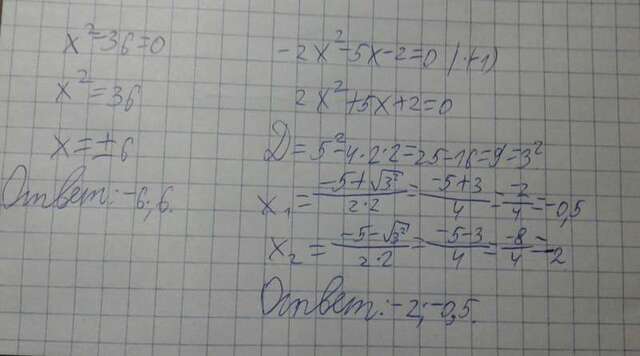 x²-36=0
x²=36
x=±6
Ответ: -6; 6.
-2x²-5x-2=0 |·(-1)
2x²+5x+2=0
D=5²-4·2·2=25-16=9=3²
x₁=(-5+√3²)/(2·2)=(-5+3)/4=-2/4=-0,5
x₂=(-5-√3²)/(2·2)=(-5-3)/4=-8/4=-2
Ответ: -2; -0,5.